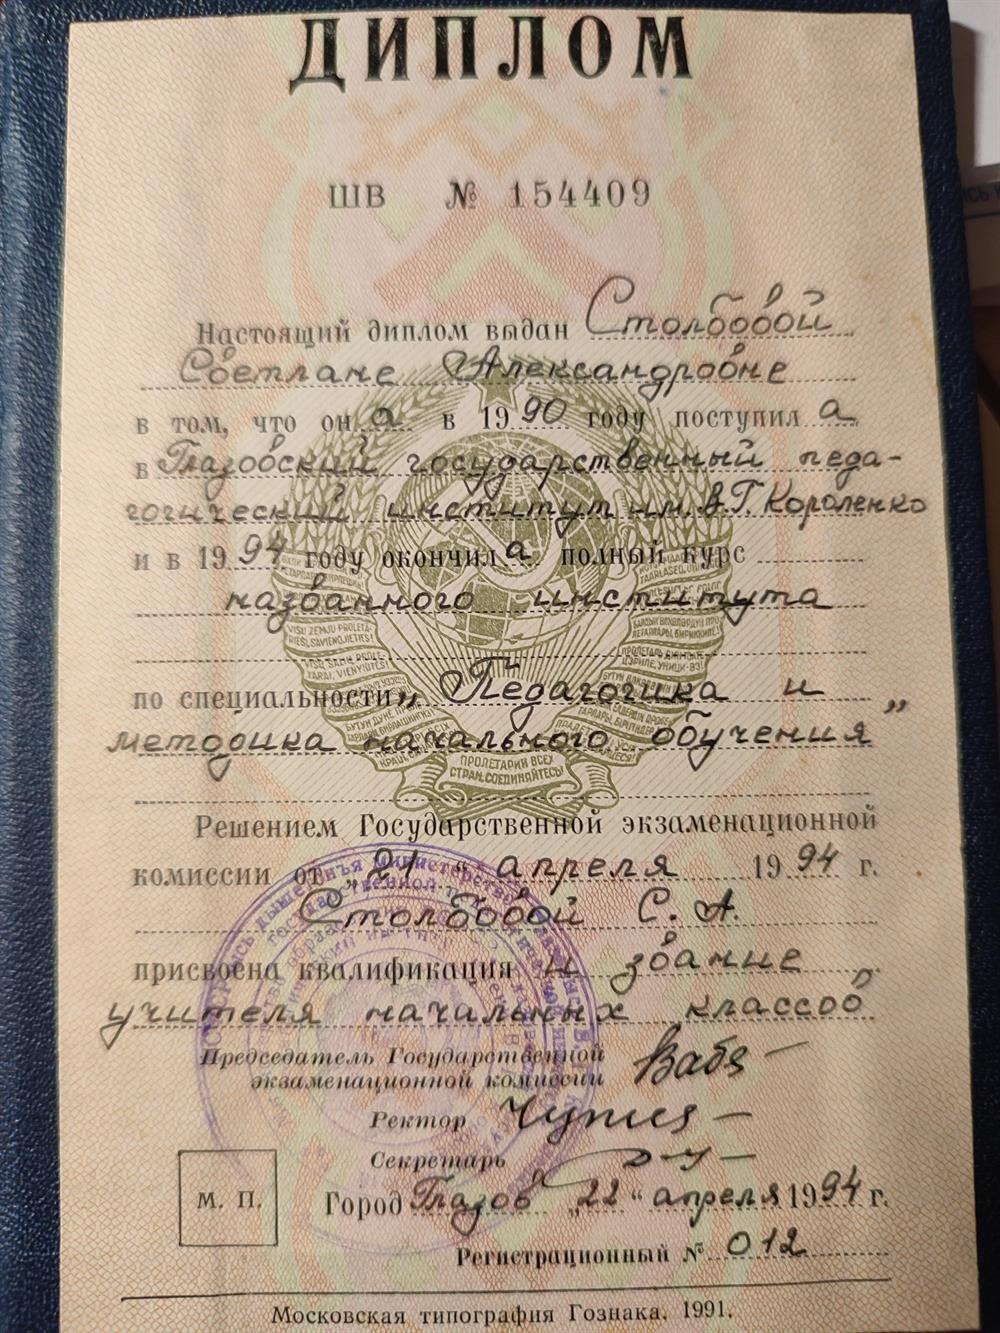 ДИПЛОМ
ШВ № 154409
Настоящий диплом выдан Столбовой
Светлане Александровне
в том, что она в 1990 году поступила
в Глазовский государственный педа-
гогический институт им. В.Г. Короленко
и в 1994 году окончила полный курс
названного института
по специальности „Педагогика и
методика начального обучения"
Решением Государственной экзаменационной
комиссии от „21" апреля 1994 г.
Столбовой С. А.
присвоена квалификация и звание
учителя начальных классов
Председатель Государственной
экзаменационной комиссии
Ректор
Секретарь
М. П.
Город Глазов „22" апреля 1994 г.
Регистрационный № 012
Московская типография Гознака. 1991.
ПРОЛЕТАРИИ ВСЕХ
СТРАН, СОЕДИНЯЙТЕСЬ!